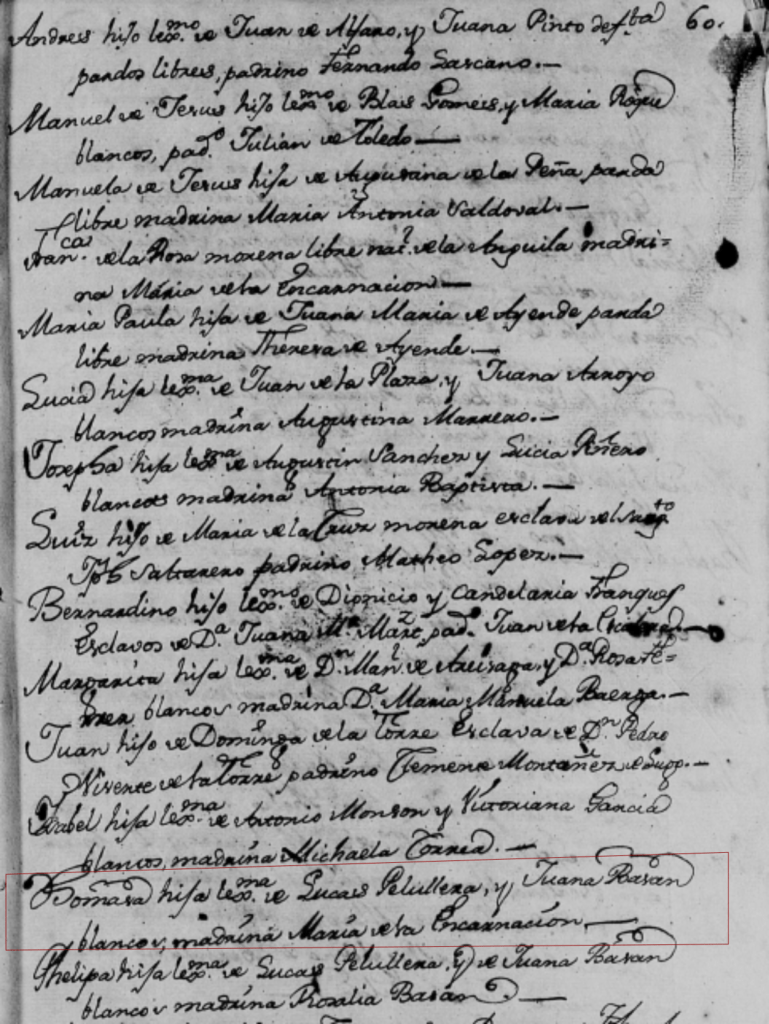 Andres hijo lexmo. de Juan de Alfaro, y Juana Pinto defta 60.
pardos libres, padrino Fernando Lascano.—
Manuel de Jesus hijo lexmo. de Blas Gomes, y Maria Roque
blancos, pado. Julian de Toledo—
Manuela de Jesus hija de Augustina de la Peña parda
libre madrina Maria Antonia Valdoval.—
Franca. de la Rosa morena libre natl. de la Anguila madri=
na Maria de la Encarnacion—
Maria Paula hija de Juana Maria de Ayende parda
libre madrina Theresa de Ayende.—
Lucia hija lexma. de Juan de la Plaza, y Juana Arroyo
blancos madrina Augustina Marrero.—
Josepha hija lexma. de Augustin Sanches y Lucia
blancos madrina Antonia Baptista.—
Luis hijo de Maria de la Cruz morena esclava del sargto
Jph padrino Matheo Lopez.—
Bernardino hijo lexmo. de Dionicio y Candelaria Franques
Esclavos de Da. Juana Ma. Marz. pado. Juan de la
Margarita hija lexma. de Dn. Manl. de y Da. Rosa
blancos madrina Da. Maria Manuela Baerga.—
Juan hijo de Dominga de la Torre Esclava de Dn. Pedro
Visente de la Torre padrino Clemente Montañez de Supp.—
Ysabel hija lexma. de Antonio Monson y Victoriana Garcia
blancos, madrina Michaela Correa.—
Thomasa hija lexma. de Lucas Pelullera, y Juana Basan
blancos, madrina Maria de la Encarnacion,—
Phelipa hija lexma. de Lucas Pelullera, y de Juana Basan
blancos madrina Rosalia Basan—